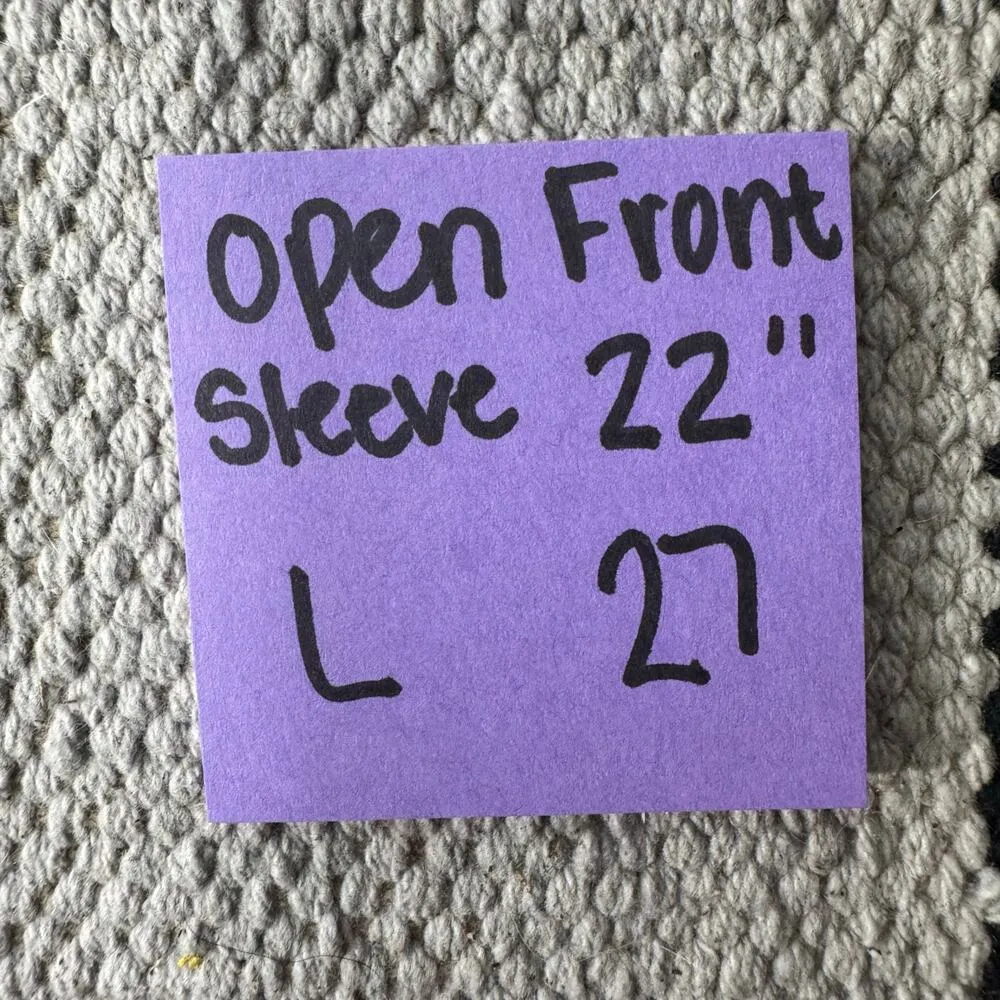 Open Front
Sleeve 22"
L 27